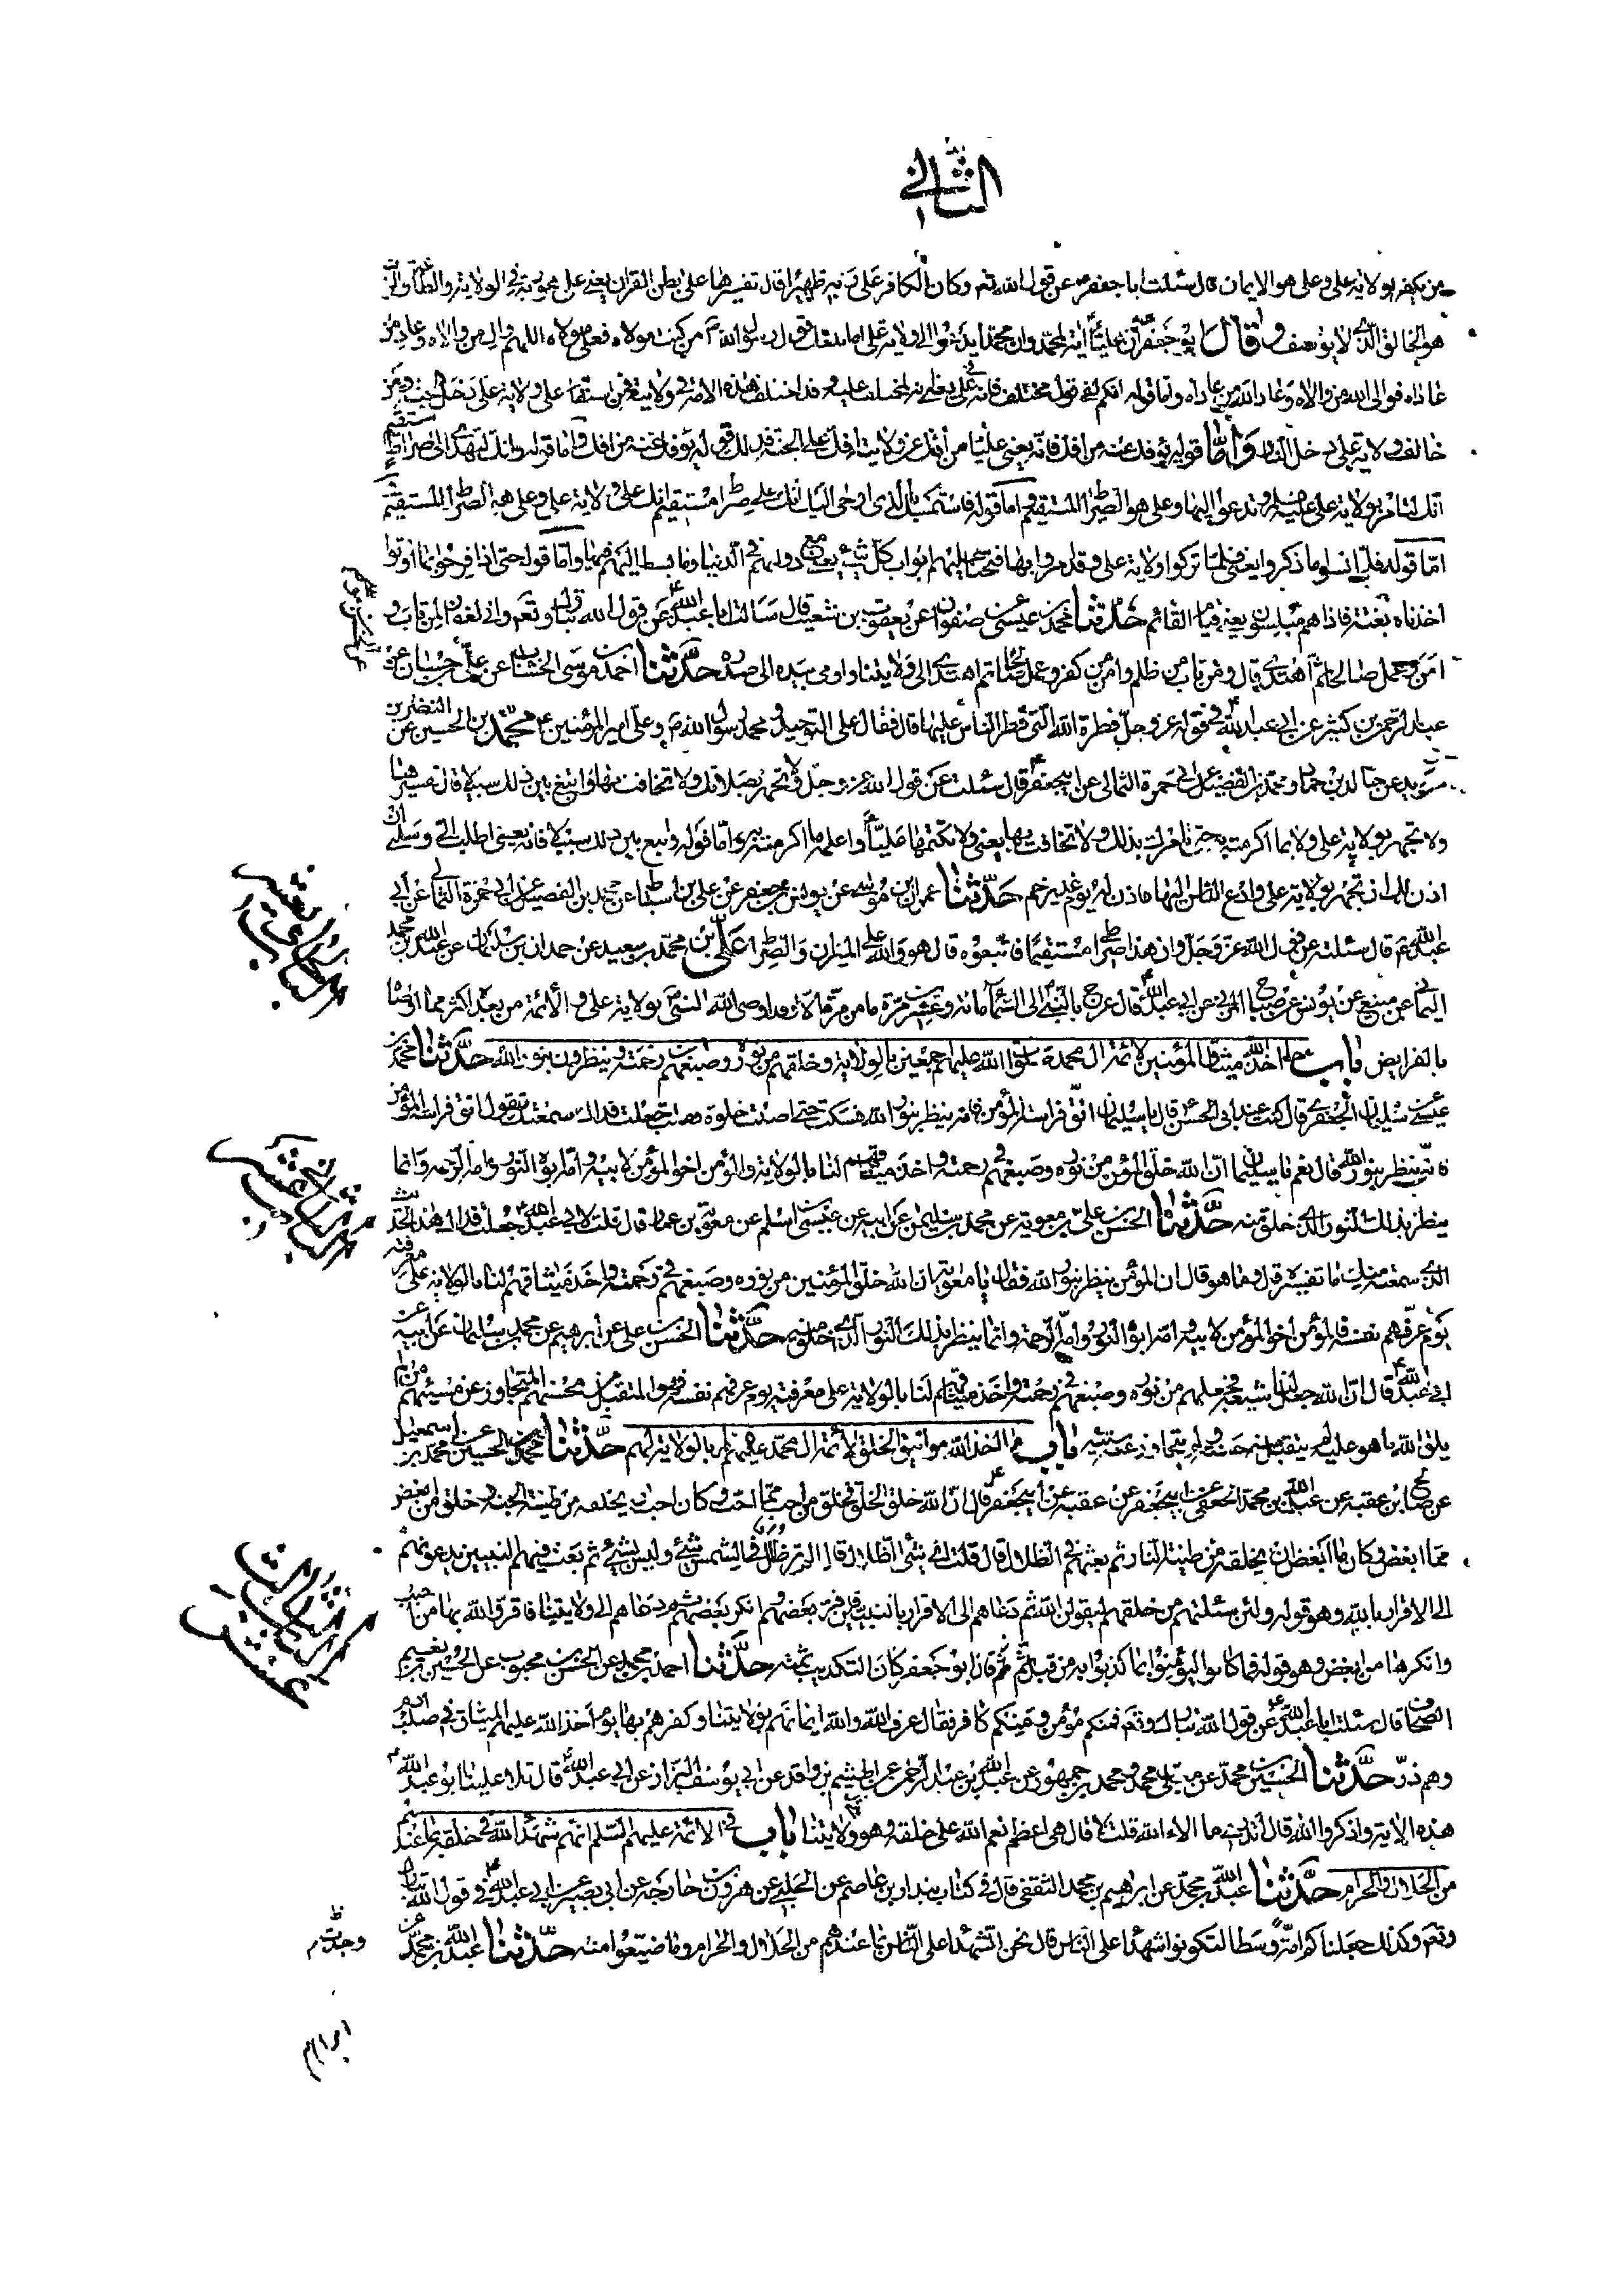 الثاني
من يكفر بولاية علي وعلي هو الايمان قال سئلت ابا جعفر ع عن قول الله تع وكان الكافر على ربه ظهيرا قال تفسيرها على بطن القران يعني علي هو ربه في الولاية والطاعة والرب
هو الخالق الذي لا يوصف وقال ابو جعفر ع ان عليا اية لمحمد وان محمدا يدعوا الى ولاية علي اما بلغك قول رسول الله ص من كنت مولاه فعلي مولاه اللهم وال من والاه وعاد من
عاداه فوالى الله من والاه وعاد الله من عاداه واما قوله انكم لفي قول مختلف فانه في علي يعني انه لمختلف عليه وقد اختلف هذه الامة في ولايته فمن استقام على ولاية علي دخل الجنة ومن
خالف ولاية علي دخل النار واما قوله يؤفك عنه من افك فانه يعني عليا من افك عن ولايته افك على الجنة فذلك قوله يؤفك عنه من افك واما قوله وانك لتهدي الى صراط مستقيم
انك لتامر بولاية علي عليه السلم وتدعوا اليها وعلي هو الصراط المستقيم واما قوله فاستمسك بالذي اوحي اليك انك على صراط مستقيم انك على ولاية علي وعلي هو الصراط المستقيم
امّا قوله فلما نسوا ما ذكروا يعني فلما تركوا ولاية علي وقد امروا بها فتحنا عليهم ابواب كل شيء يعني مع دولتهم في الدنيا وما بسط اليهم فيها واما قوله حتى اذا فرحوا بما اوتوا
اخذناهم بغتة فاذا هم مبلسون يعني قيام القائم حدثنا محمد بن عيسى عن صفوان عن يعقوب بن شعيب قال سالت ابا عبد الله ع عن قول الله تبارك وتعم واني لغفار لمن تاب و
امن وعمل صالحا ثم اهتدى قال ومن تاب من ظلم وامن من كفر وعمل صالحا ثم اهتدى الى ولايتنا واومى بيده الى صدره حدثنا احمد بن موسى الخشاب عن علي بن حسان عن
عبد الرحمن بن كثير عن ابي عبد الله ع في قوله عز وجل فطرة الله التي فطر الناس عليها قال فقال على التوحيد ومحمد رسول الله ص وعلي امير المؤمنين ع محمد بن الحسين عن النضر بن
سويد عن خالد بن حماد ومحمد بن الفضيل عن ابي حمزة الثمالي عن ابي جعفر ع قال سئلته عن قول الله عز وجل ولا تجهر بصلاتك ولا تخافت بها وابتغ بين ذلك سبيلا قال تفسيرها
ولا تجهر بولاية علي ولا بما اكرمته به حتى نامرك بذلك ولا تخافت بها يعني ولا تكتمها عليا واعلمه ما اكرمته به واما قوله وابتغ بين ذلك سبيلا فانه يعني اطلب الي وسلني ان
اذن لك ان تجهر بولاية علي وادع الناس اليها فاذن له يوم غدير خم حدثنا عمران بن موسى عن موسى بن جعفر عن علي بن اسباط عن محمد بن الفضيل عن ابي حمزة الثمالي عن ابي
عبد الله ع قال سئلته عن قول الله عز وجل وان هذا صراطي مستقيما فاتبعوه قال هو والله علي الميزان والصراط علي بن محمد بن سعيد عن حمدان بن سليمان عن عبد الله بن محمد
اليماني عن منيع عن يونس عن صباح المزني عن ابي عبد الله ع قال عرج بالنبي الى السماء مائة وعشرين مرة ما من مرة الا وقد اوصى الله النبي بولاية علي والائمة من بعده اكثر مما اوصاه
بالفرايض باب ما اخذ الله ميثاق المؤمنين لائمة ال محمد صلوات الله عليهم اجمعين بالولاية وخلقهم من نوره وصبغهم في رحمته وينظرون بنور الله حدثنا محمد بن
عيسى عن سليمان الجعفري قال كنت عند ابي الحسن ع قال يا سليمان اتق فراسة المؤمن فانه ينظر بنور الله فسكت حتى اصبت خلوة فقلت جعلت فداك سمعتك تقول اتق فراسة المؤمن
فانه ينظر بنور الله قال نعم يا سليمان ان الله خلق المؤمن من نوره وصبغهم في رحمته واخذ ميثاقهم لنا بالولاية والمؤمن اخو المؤمن لابيه وامه ابوه النور وامه الرحمة وانما
ينظر بذلك النور الذي خلق منه حدثنا الحسن بن علي بن معوية عن محمد بن سليمان عن ابيه عن عيسى بن اسلم عن معوية بن عمار قال قلت لابي عبد الله ع جعلت فداك هذا الحديث
الذي سمعته منك ما تفسيره قال وما هو قال ان المؤمن ينظر بنور الله فقال يا معوية ان الله خلق المؤمنين من نوره وصبغهم في رحمته واخذ ميثاقهم لنا بالولاية على معرفته
يوم عرفهم نفسه فالمؤمن اخو المؤمن لابيه وامه ابوه النور وامه الرحمة وانما ينظر بذلك النور الذي خلق منه حدثنا الحسن بن علي عن ابرهيم عن محمد بن سليمان عن ابيه عن
ابي عبد الله ع قال ان الله جعل لنا شيعة فجعلهم من نوره وصبغهم في رحمته واخذ ميثاقهم لنا بالولاية على معرفته يوم عرفهم نفسه فهو المتقبل من محسنهم المتجاوز عن مسيئهم من لم
يلق الله بما هو عليه لم يتقبل منه حسنة ولم يتجاوز عنه سيئة باب ما اخذ الله مواثيق الخلق لائمة ال محمد عليهم السلم بالولاية لهم حدثنا محمد بن الحسين عن محمد بن اسمعيل
عن صالح بن عقبة عن عبد الله بن محمد الجعفي عن ابي جعفر وعن عقبة عن ابي جعفر ع قال ان الله خلق الخلق فخلق من احب مما احب وكان احب ان يخلقه من طينة الجنة وخلق من ابغض
مما ابغض وكان ما ابغض ان يخلقه من طينة النار ثم بعثهم في الظلال قال قلت اي شيء الظلال قال الم تر ظلك في الشمس شيء وليس بشيء ثم بعث فيهم النبيين يدعونهم
الى الاقرار بالله وهو قوله ولئن سئلتهم من خلقهم ليقولن الله ثم دعاهم الى الاقرار بالنبيين فاقر بعضهم وانكر بعضهم ثم دعاهم الى ولايتنا فاقر والله بها من احب
وانكرها من ابغض وهو قوله فما كانوا ليؤمنوا بما كذبوا به من قبل ثم قال ابو جعفر كان التكذيب ثمة حدثنا احمد بن محمد عن الحسن بن محبوب عن الحسين بن نعيم
الصحاف قال سئلت ابا عبد الله ع عن قول الله تبارك وتع فمنكم مؤمن ومنكم كافر فقال عرف الله والله ايمانهم بولايتنا وكفرهم بها يوم اخذ الله عليهم الميثاق في صلب ادم
وهم ذر حدثنا الحسين بن محمد عن معلى بن محمد ومحمد بن جمهور عن عبد الله بن عبد الرحمن عن الهيثم بن واقد عن ابي يوسف البزاز عن ابي عبد الله ع قال تلا علينا ابو عبد الله ع
هذه الاية واذكروا الاء الله قال اتدري ما الاء الله قلت لا قال هي اعظم نعم الله على خلقه وهو ولايتنا باب في الائمة عليهم السلم انهم شهداء الله في خلقه بما عندهم
من الحلال والحرام حدثنا عبد الله بن محمد عن ابراهيم بن محمد الثقفي قال في كتاب بندار بن عاصم عن الحلبي عن هرون بن خارجة عن ابي بصير عن ابي عبد الله ع في قول الله تبارك
وتعم وكذلك جعلناكم امة وسطا لتكونوا شهداء على الناس قال نحن الشهداء على الناس بما عندهم من الحلال والحرام وما ضيعوا منه حدثنا عبد الله بن محمد عن
الباب الحادي عشر
الباب الثاني عشر
الباب الثالث عشر
وجدت
ابراهيم